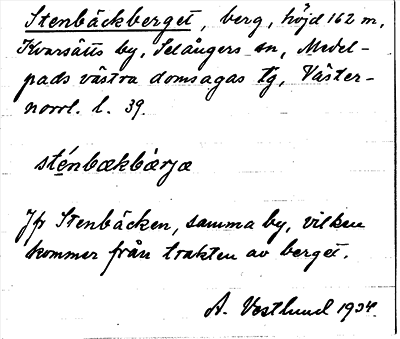 Stenbäckberget, berg, höjd 162 m,
Kvarsätts by, Selångers sn, Medel-
pads västra domsagas tg, Väster-
norrl. l. 39.
sténbækbærjæ
Jfr Stenbäcken, samma by, vilken
kommer från trakten av berget.
A. Vestlund 1934.